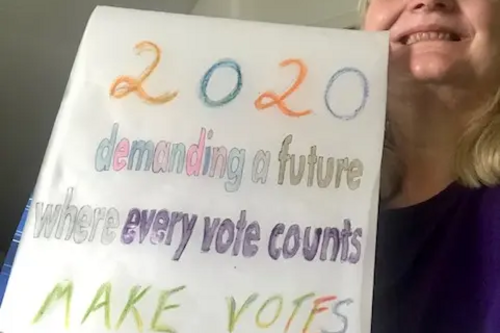 2020
demanding a future
where every vote counts
MAKE VOTES